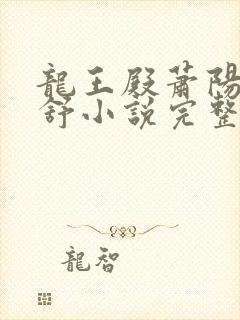 龍王殿蕭陽
舒小說完整
龍智